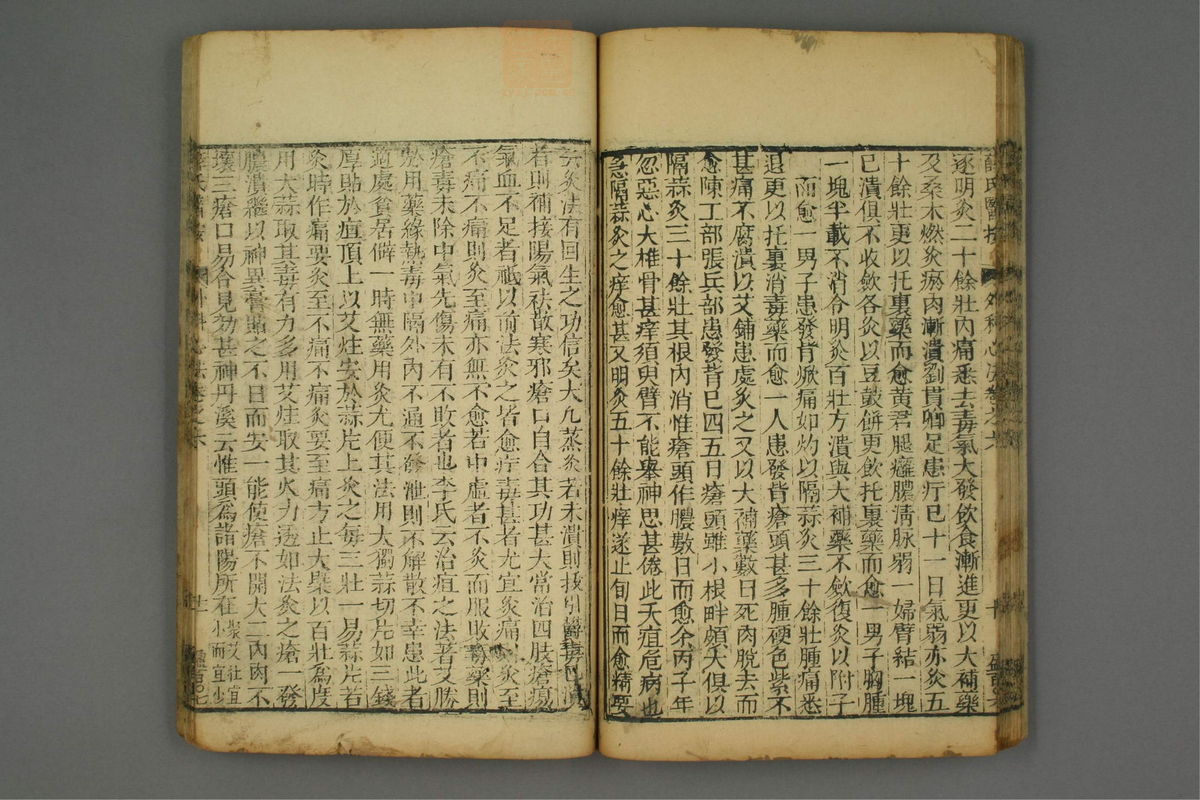 薛氏醫按 外科心法卷之六 十
逐明灸二十餘壯内痛悉去毒氣大發飲食漸進更以大補藥
及桑木燃灸瘀肉漸潰劉貫卿足患疔巳十一日氣弱亦灸五
十餘壯更以托裏藥而愈黃君腿癰膿清脉弱一婦臂結一塊
已潰俱不收歛各灸以豆豉餅更飲托裏藥而愈一男子胸腫
一塊半載不消令明灸百壯方潰與大補藥不歛復灸以附子
而愈一男子患發背焮痛如灼以隔蒜灸三十餘壯腫痛悉
退更以托裏消毒藥而愈一人患發背瘡頭甚多腫硬色紫不
甚痛不腐潰以艾鋪患處灸之又以大補藥數日死肉脫去而
愈陳工部張兵部患發背巳四五日瘡頭雖小根畔頗大俱以
隔蒜灸三十餘壯其根内消惟瘡頭作膿數日而愈余丙子年
忽惡心大椎骨甚痒須臾臂不能舉神思甚倦此夭疽危病也
急隔蒜灸之痒愈甚又明灸五十餘壯痒遂止旬日而愈精要
云灸法有回生之功信矣大凡蒸灸若未潰則拔引鬱毒已潰
者則補接陽氣祛散寒邪瘡口自合其功甚大當治四肢瘡瘍
氣血不足者秪以前法灸之皆愈疔毒甚者尤宜灸痛者灸至
不痛不痛則灸至痛亦無不愈若中虛者不灸而服敗毒藥則
瘡毒未除中氣先傷未有不敗者也李氏云治疽之法著艾勝
於用藥緣熱毒中隔外内不通不發泄則不解散不幸患此者
適處貧居僻一時無藥用灸尤便其法用大獨蒜切片如三錢
厚貼於疽頂上以艾炷安於蒜片上灸之每三壯一易蒜片若
灸時作痛要灸至不痛不痛灸要至痛方止大槩以百壯爲度
用大蒜取其毒有力多用艾炷取其火力透如法灸之瘡一發
膿潰繼以神異膏貼之不日而安一能使瘡不開大二内肉不
壞三瘡口易合見効甚神丹溪云惟頭爲諸陽所在聚艾壯宜小而宜少
薛氏醫按 外科心法卷之六 十一